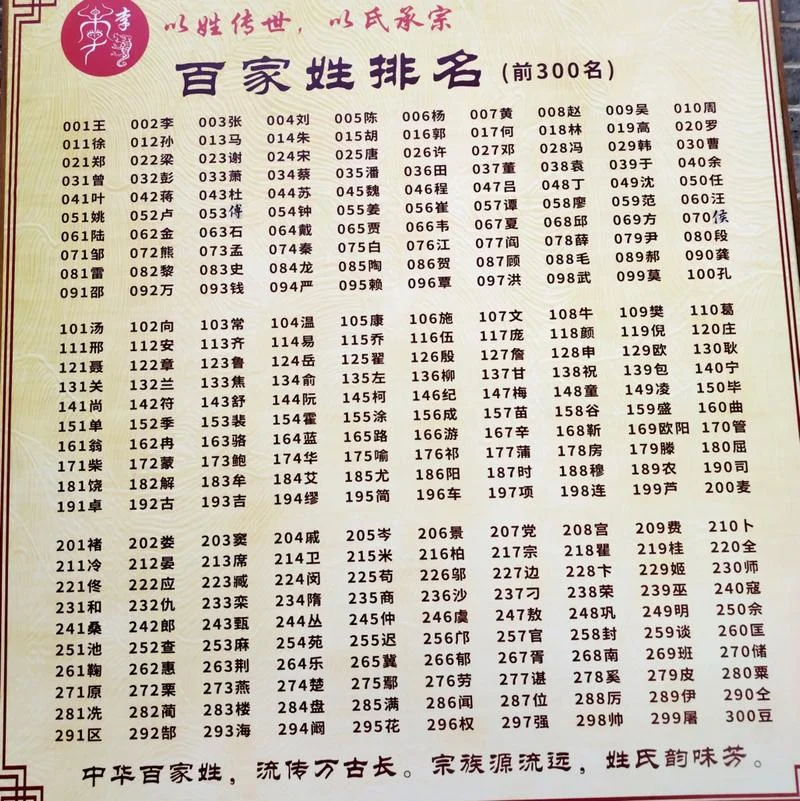 李
以姓传世，以氏承宗
百家姓排名(前300名)
001王 002李 003张 004刘 005陈 006杨 007黄 008赵 009吴 010周
011徐 012孙 013马 014朱 015胡 016郭 017何 018林 019高 020罗
021郑 022梁 023谢 024宋 025唐 026许 027邓 028冯 029韩 030曹
031曾 032彭 033萧 034蔡 035潘 036田 037董 038袁 039于 040余
041叶 042蒋 043杜 044苏 045魏 046程 047吕 048丁 049沈 050任
051姚 052卢 053傅 054钟 055姜 056崔 057谭 058廖 059范 060汪
061陆 062金 063石 064戴 065贾 066韦 067夏 068邱 069方 070侯
071邹 072熊 073孟 074秦 075白 076江 077阎 078薛 079尹 080段
081雷 082黎 083史 084龙 085陶 086贺 087顾 088毛 089郝 090龚
091邵 092万 093钱 094严 095赖 096覃 097洪 098武 099莫 100孔
101汤 102向 103常 104温 105康 106施 107文 108牛 109樊 110葛
111邢 112安 113齐 114易 115乔 116伍 117庞 118颜 119倪 120庄
121聂 122章 123鲁 124岳 125翟 126殷 127詹 128申 129欧 130耿
131关 132兰 133焦 134俞 135左 136柳 137甘 138祝 139包 140宁
141尚 142符 143舒 144阮 145柯 146纪 147梅 148童 149凌 150毕
151单 152季 153裴 154霍 155涂 156成 157苗 158谷 159盛 160曲
161翁 162冉 163骆 164蓝 165路 166游 167辛 168靳 169欧阳 170管
171柴 172蒙 173鲍 174华 175喻 176祁 177蒲 178房 179滕 180屈
181饶 182解 183牟 184艾 185尤 186阳 187时 188穆 189农 190司
191卓 192古 193吉 194缪 195简 196车 197项 198连 199芦 200麦
201褚 202娄 203窦 204戚 205岑 206景 207党 208宫 209费 210卜
211冷 212晏 213席 214卫 215米 216柏 217宗 218瞿 219桂 220全
221佟 222应 223臧 224闵 225苟 226邬 227边 228卞 229姬 230师
231和 232仇 233栾 234隋 235商 236沙 237刁 238荣 239巫 240寇
241桑 242郎 243甄 244丛 245仲 246虞 247敖 248巩 249明 250佘
251池 252查 253麻 254苑 255迟 256邝 257官 258封 259谈 260匡
261鞠 262惠 263荆 264乐 265冀 266郁 267胥 268南 269班 270储
271原 272栗 273燕 274楚 275鄢 276劳 277谌 278奚 279皮 280粟
281冼 282蔺 283楼 284盘 285满 286闻 287位 288厉 289伊 290仝
291区 292郜 293海 294阚 295花 296权 297强 298帅 299屠 300豆
中华百家姓，流传万古长。宗族源流远，姓氏韵味芳。